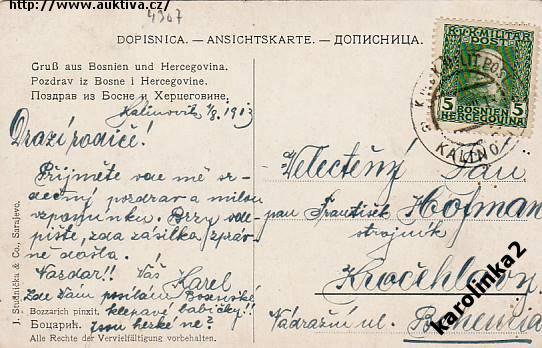 http://www.auktiva.cz/
4907
DOPISNICA. — ANSICHTSKARTE. — ДОПИСНИЦА.
Gruß aus Bosnien und Hercegovina.
Pozdrav iz Bosne i Hercegovine.
Поздрав из Босне и Херцеговине.
Kalinovik 1/8 1913
Drazí rodiče!
Přijměte ode mě sr-
dečný pozdrav a milou
vzpomínku. Brzy ode-
pište, zda zásilka správ-
ně došla.
Nazdar!! Váš
Karel
Zde Vám posílám Bosenské
Bozzarich pinxit. klepavé babičky!!
Боцарић. jsou hezké né?
Alle Rechte der Vervielfältigung vorbehalten.
J. Studnička & Co., Sarajevo.
K.u.K. MILITÄR
POST
5 5
BOSNIEN
HERCEGOVINA
KALINO
Veletěný Pan
pan František Hofman
strojník
Kročehlavy
Nádražní ul. Bohemia
karolinka2